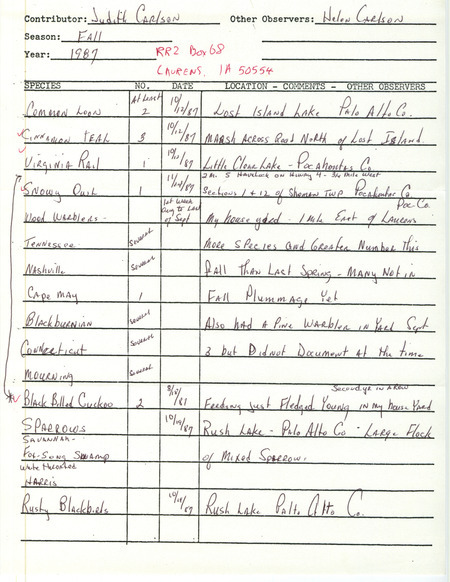 Contributor: Judith Carlson Other Observers: Helen Carlson
Season: Fall
Year: 1987 RR2 Box 68
Laurens, IA 50554
SPECIES NO. DATE LOCATION - COMMENTS - OTHER OBSERVERS
Common Loon At Least 2 10/12/87 Lost Island Lake Palo Alto Co.
Cinnamon Teal 3 10/12/87 Marsh across Road North of Lost Island.
Virginia Rail 1 Little Clear Lake - Pocahontas Co.
2 mi. S Havelock on Hiway 4 - 3/4 mile West
Snowy Owl 1 Sections 1 + 12 of Sherman TWP Pocahontas Co.
Poc. Co.
Wood Warblers - 1st week Aug to Last of Sept My house yard - 1 mile East of Laurens
Tennessee several More Species and Greater Number this
Nashville several Fall than Last Spring - Many Not in
Cape May 1 Fall Plummage Yet
Blackburnian several Also had a Pine Warbler in Yard Sept
Connecticut several 3 but Did not Document at the time
Mourning several
Second yr in a row
Black Billed Cuckoo 2 Feeding just Fledged Young in my house Yard
Sparrows 10/19/87 Rush Lake - Palo Alto Co - Large Flock
Savannah -
Fox - Song Swamp of Mixed Sparrows.
White throated
Harris
Rusty Blackbirds 10/19/87 Rush Lake Palto Alto Co.